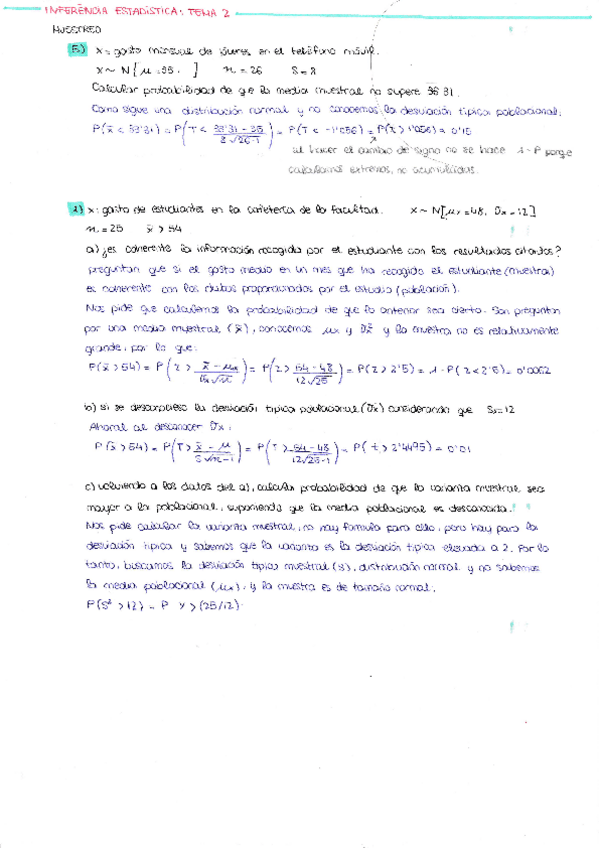 INFERÈNCIA ESTADÍSTICA: TEMA 2
MUESTREO
5) x = gasto mensual de jóvenes en el teléfono móvil.
x ~ N[μ = 35, ] n = 26 S = 8
Calcular probabilidad de que la media muestral no supere 33'31.
Como sigue una distribución normal y no conocemos la desviación típica poblacional:
P(x̄ < 33'31) = P(T < (33'31 - 35)/(8√26-1)) = P(T < -1'056) = P(t > 1'056) = 0'15
al hacer el cambio de signo no se hace 1-P porque
calculamos extremos, no acumuladas.
2) x: gasto de estudiantes en la cafetería de la facultad. x ~ N[μx = 48, σx = 12]
n = 25 x̄ > 54
a) ¿es coherente la información recogida por el estudiante con los resultados citados?
preguntan que si el gasto medio en un mes que ha recogido el estudiante (muestra)
es coherente con los datos proporcionados por el estudio (población).
Nos pide que calculemos la probabilidad de que lo anterior sea cierto. Son preguntan
por una media muestral (x̄), conocemos μx y σx y la muestra no es relativamente
grande, por lo que:
P(x̄ > 54) = P(z > (x̄ - μx)/(σx√n)) = P(z > (54 - 48)/(12√25)) = P(z > 2'5) = 1 - P(z < 2'5) = 0'0062
b) si se desconociese la desviación típica poblacional (σx) considerando que Sx = 12
Ahora al desconocer σx:
P(x̄ > 54) = P(T > (x̄ - μ)/(S√n-1)) = P(T > (54 - 48)/(12√25-1)) = P(t > 2'4495) = 0'01
c) volviendo a los datos del a), calcular probabilidad de que la varianza muestral sea
mayor a la poblacional, suponiendo que la media poblacional es desconocida.
Nos pide calcular la varianza muestral, no hay fórmula para ello, pero hay para la
desviación típica y sabemos que la varianza es la desviación típica elevada a 2. Por lo
tanto, buscamos la desviación típica muestral (S), distribución normal y no sabemos
la media poblacional (μx), y la muestra es de tamaño normal.
P(S² > 12) = P Y > (25/12)